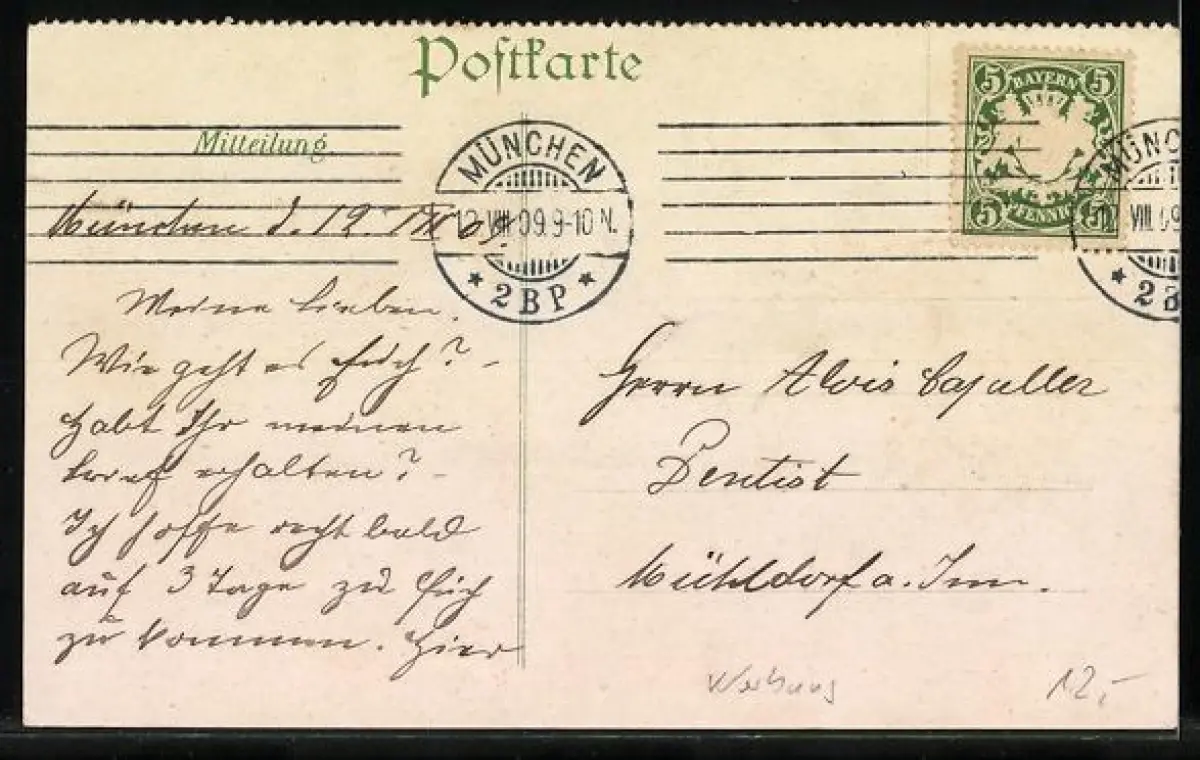 Postkarte
5 BAYERN 5
5 PFENNIG 5
Mitteilung
MÜNCHEN
12 VIII 09 9-10 N.
* 2 B P *
MÜNC
VIII 09
* 2 B
München d. 12. VIII 09.
Meine Lieben.
Wie geht es Euch? -
Habt Ihr meinen
Brief erhalten? -
Ich hoffe recht bald
auf 3 Tage zu Euch
zu kommen. Hier
Herrn Alois
Dentist
Mühldorf a. Inn.
Werbung
12,-